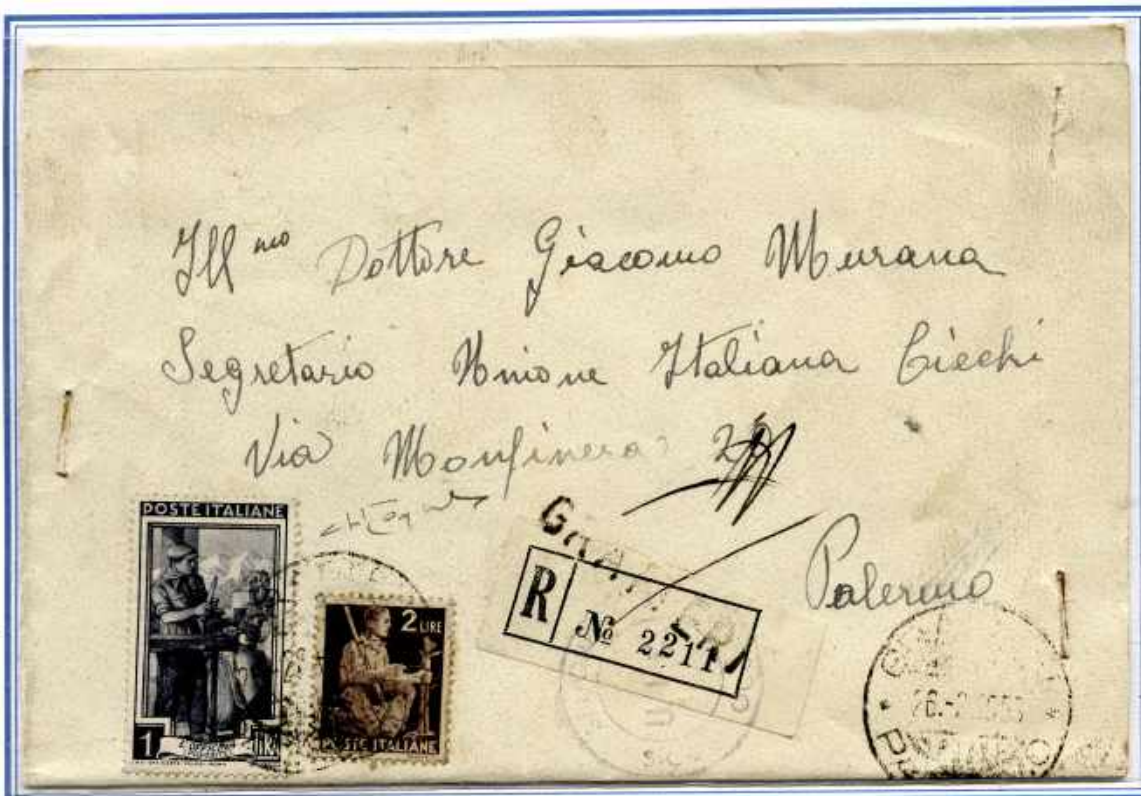 Ill mo Dottore Giacomo Murana
Segretario Unione Italiana Ciechi
Via
Palermo
POSTE ITALIANE
1
2 LIRE
POSTE ITALIANE
R № 2211